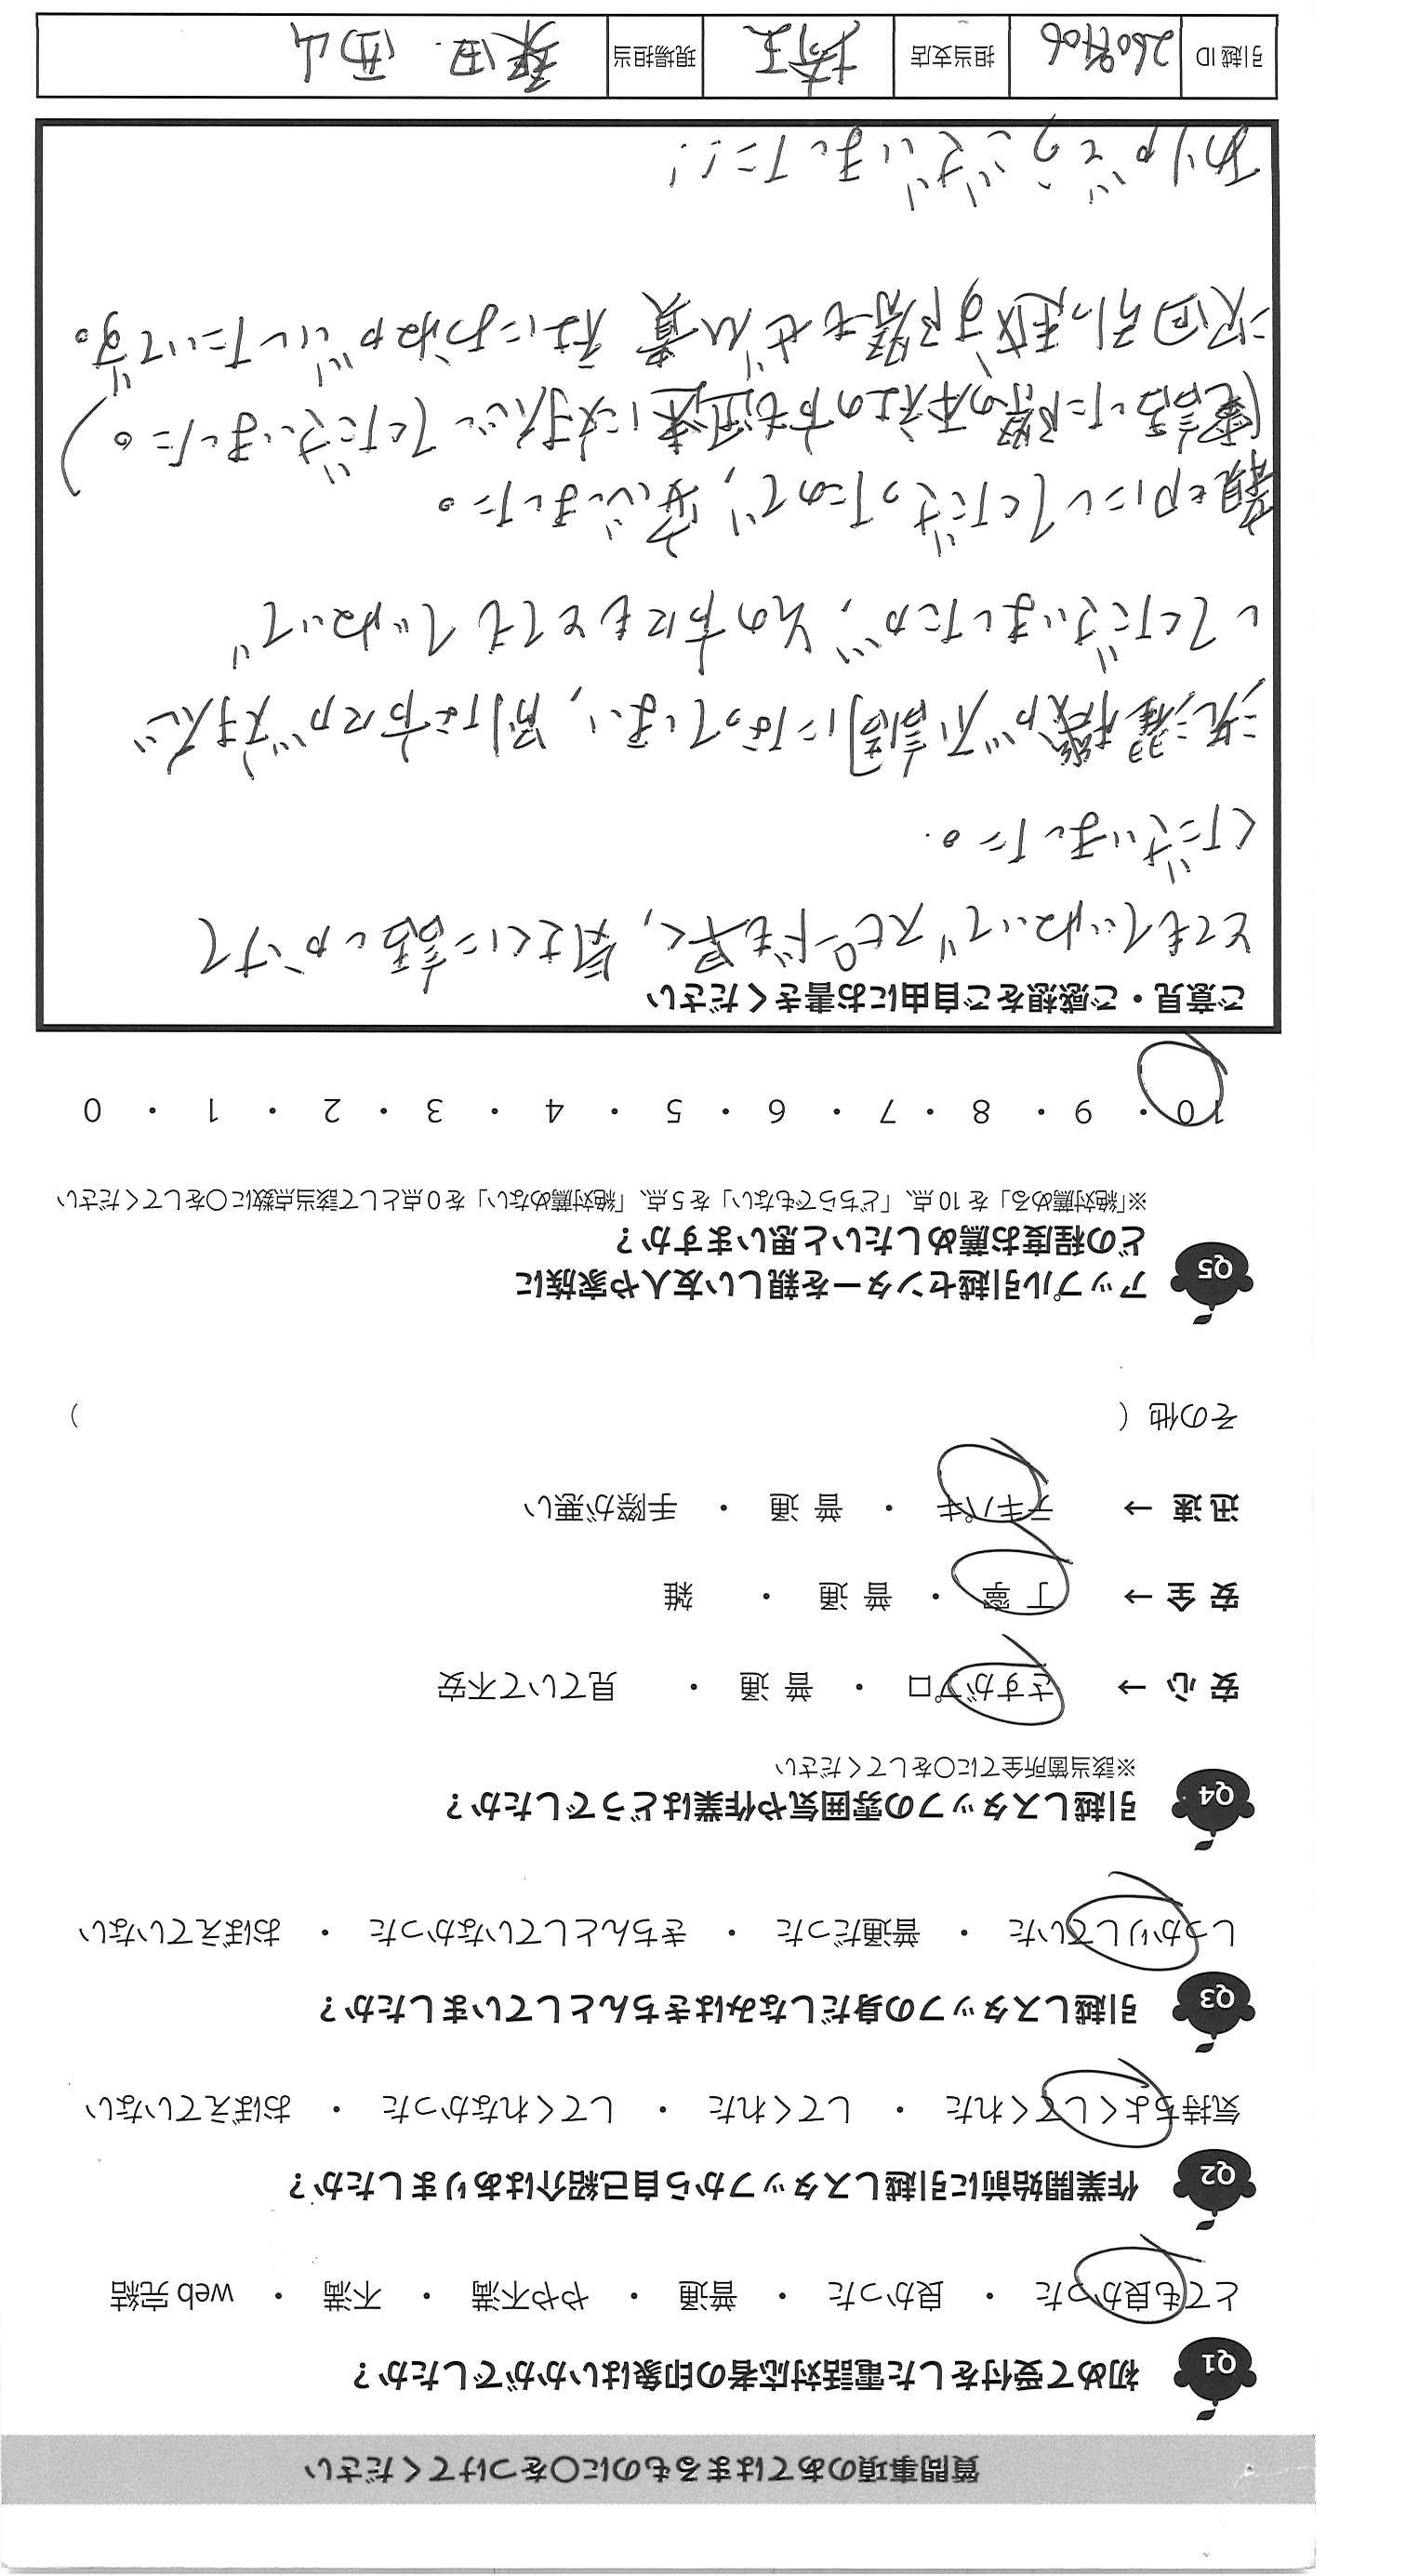 質問事項のあてはまるものに〇をつけてください
Q1 初めて受付をした電話対応者の印象はいかがでしたか？
とても良かった ・ 良かった ・ 普通 ・ やや不満 ・ 不満 ・ web 完結
Q2 作業開始前に引越しスタッフから自己紹介はありましたか？
気持ちよくしてくれた ・ してくれた ・ してくれなかった ・ おぼえていない
Q3 引越しスタッフの身だしなみはきちんとしていましたか？
しっかりしていた ・ 普通だった ・ きちんとしていなかった ・ おぼえていない
Q4 引越しスタッフの雰囲気や作業はどうでしたか？
※該当箇所全てに〇をしてください
安 心 → さすがプロ ・ 普 通 ・ 見ていて不安
安 全 → 丁 寧 ・ 普 通 ・ 雑
迅 速 → テキパキ ・ 普 通 ・ 手際が悪い
その他（ ）
Q5 アップル引越センターを親しい友人や家族に
どの程度お薦めしたいと思いますか？
※「絶対薦める」を 10 点、「どちらでもない」を 5 点、「絶対薦めない」を 0 点として該当点数に〇をしてください
10 ・ 9 ・ 8 ・ 7 ・ 6 ・ 5 ・ 4 ・ 3 ・ 2 ・ 1 ・ 0
ご意見・ご感想をご自由にお書きください
とてもていねいで スピードも早く、気さくに話しかけて
くださいました。
洗濯機が不調になってしまい、別な方でが対応
してくださいましたが、その方にもとてもていねいで
親切にしてくださったので、安心しました。
(電話した際の本社の方も迅速に対応してくださいました。)
次回引っ越す際もぜひ貴社におねがいしたいです。
ありがとうございました!!
引越 ID 担当支店 埼玉 現場担当 西山